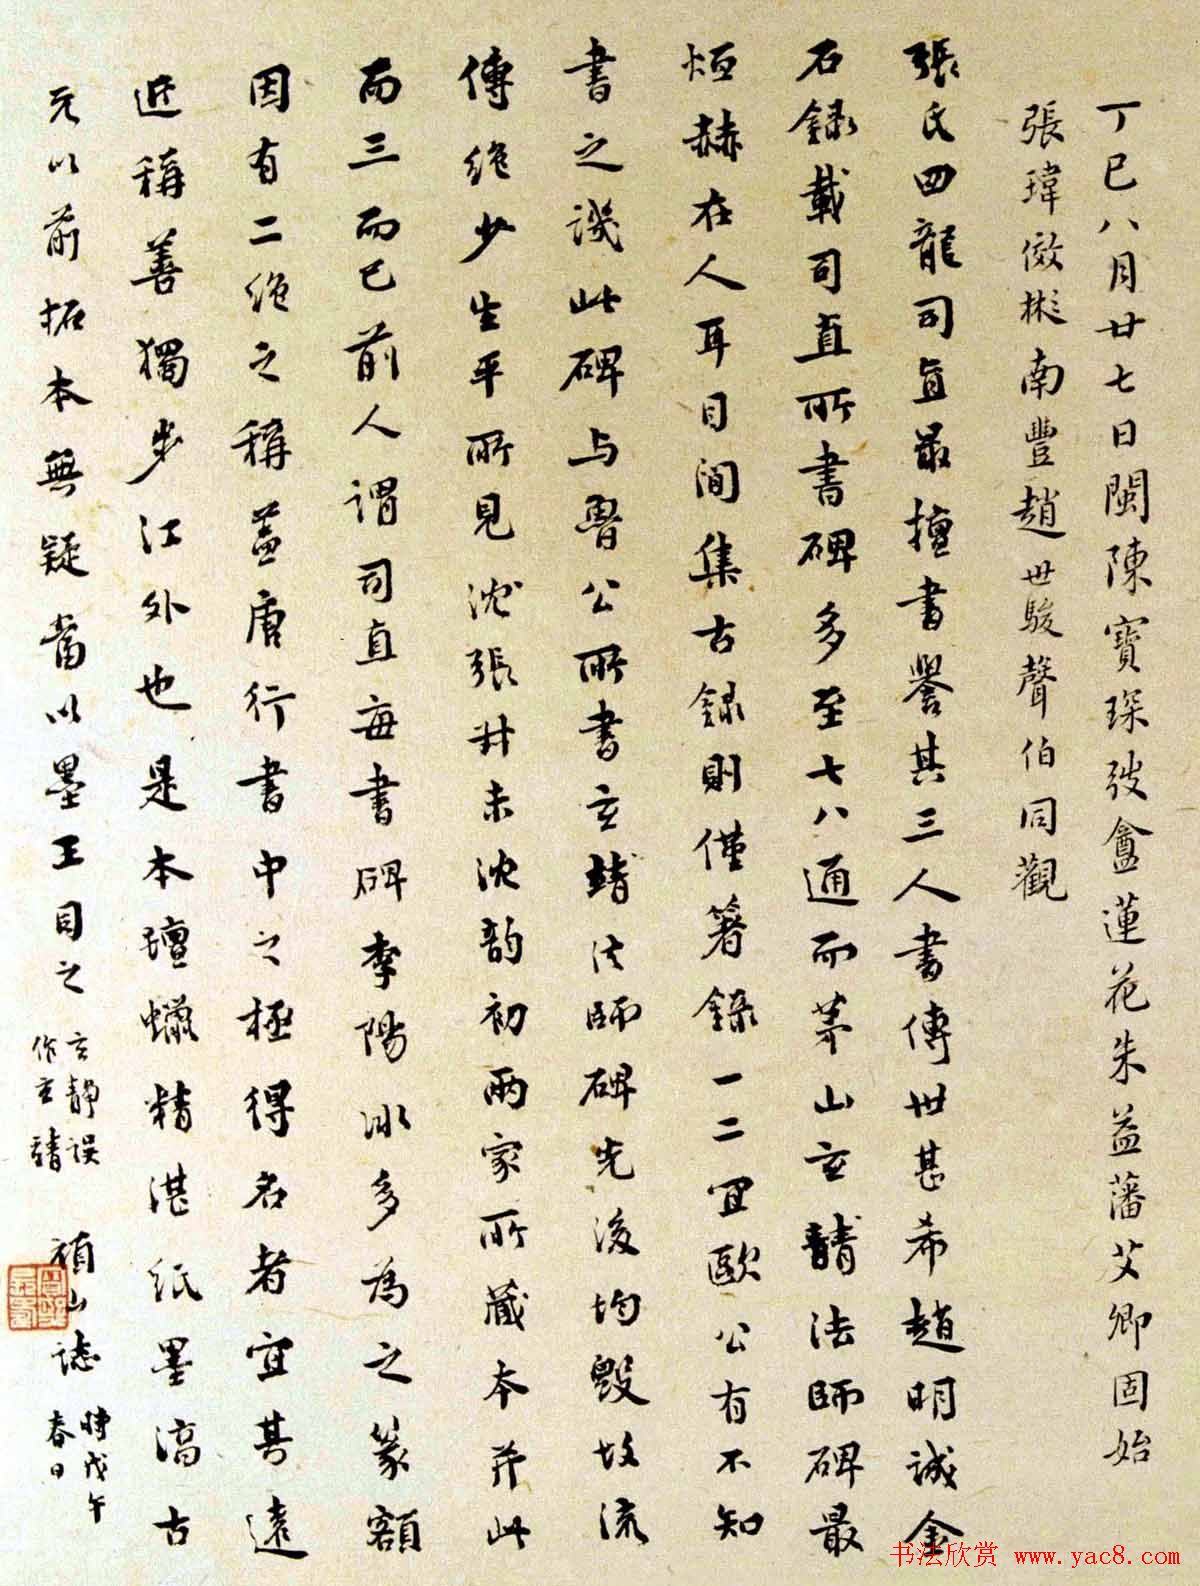 丁巳八月廿七日閩陳寶琛弢盦蓮花朱益藩艾卿固始
張瑋傚彬南豐趙世駿聲伯同觀
張氏四龍司直最擅書譽其三人書傳世甚希趙明誠金
石錄載司直所書碑多至七八通而茅山玄靜法師碑最
烜赫在人耳目間集古錄則僅著錄一二宜歐公有不知
書之譏此碑与魯公所書玄靖法師碑先後均毀故流
傳絶少生平所見沈張叔未沈韵初兩家所藏本并此
而三而已前人謂司直每書碑李陽冰多為之篆額
因有二絶之稱蓋唐行書中之極得名者宜其遠
近稱善獨步江外也是本氈蠟精湛紙墨渟古
元以前拓本無疑當以墨王目之
玄靜誤
作玄靖
山誌
時戊午
春日
书法欣赏 www.yac8.com